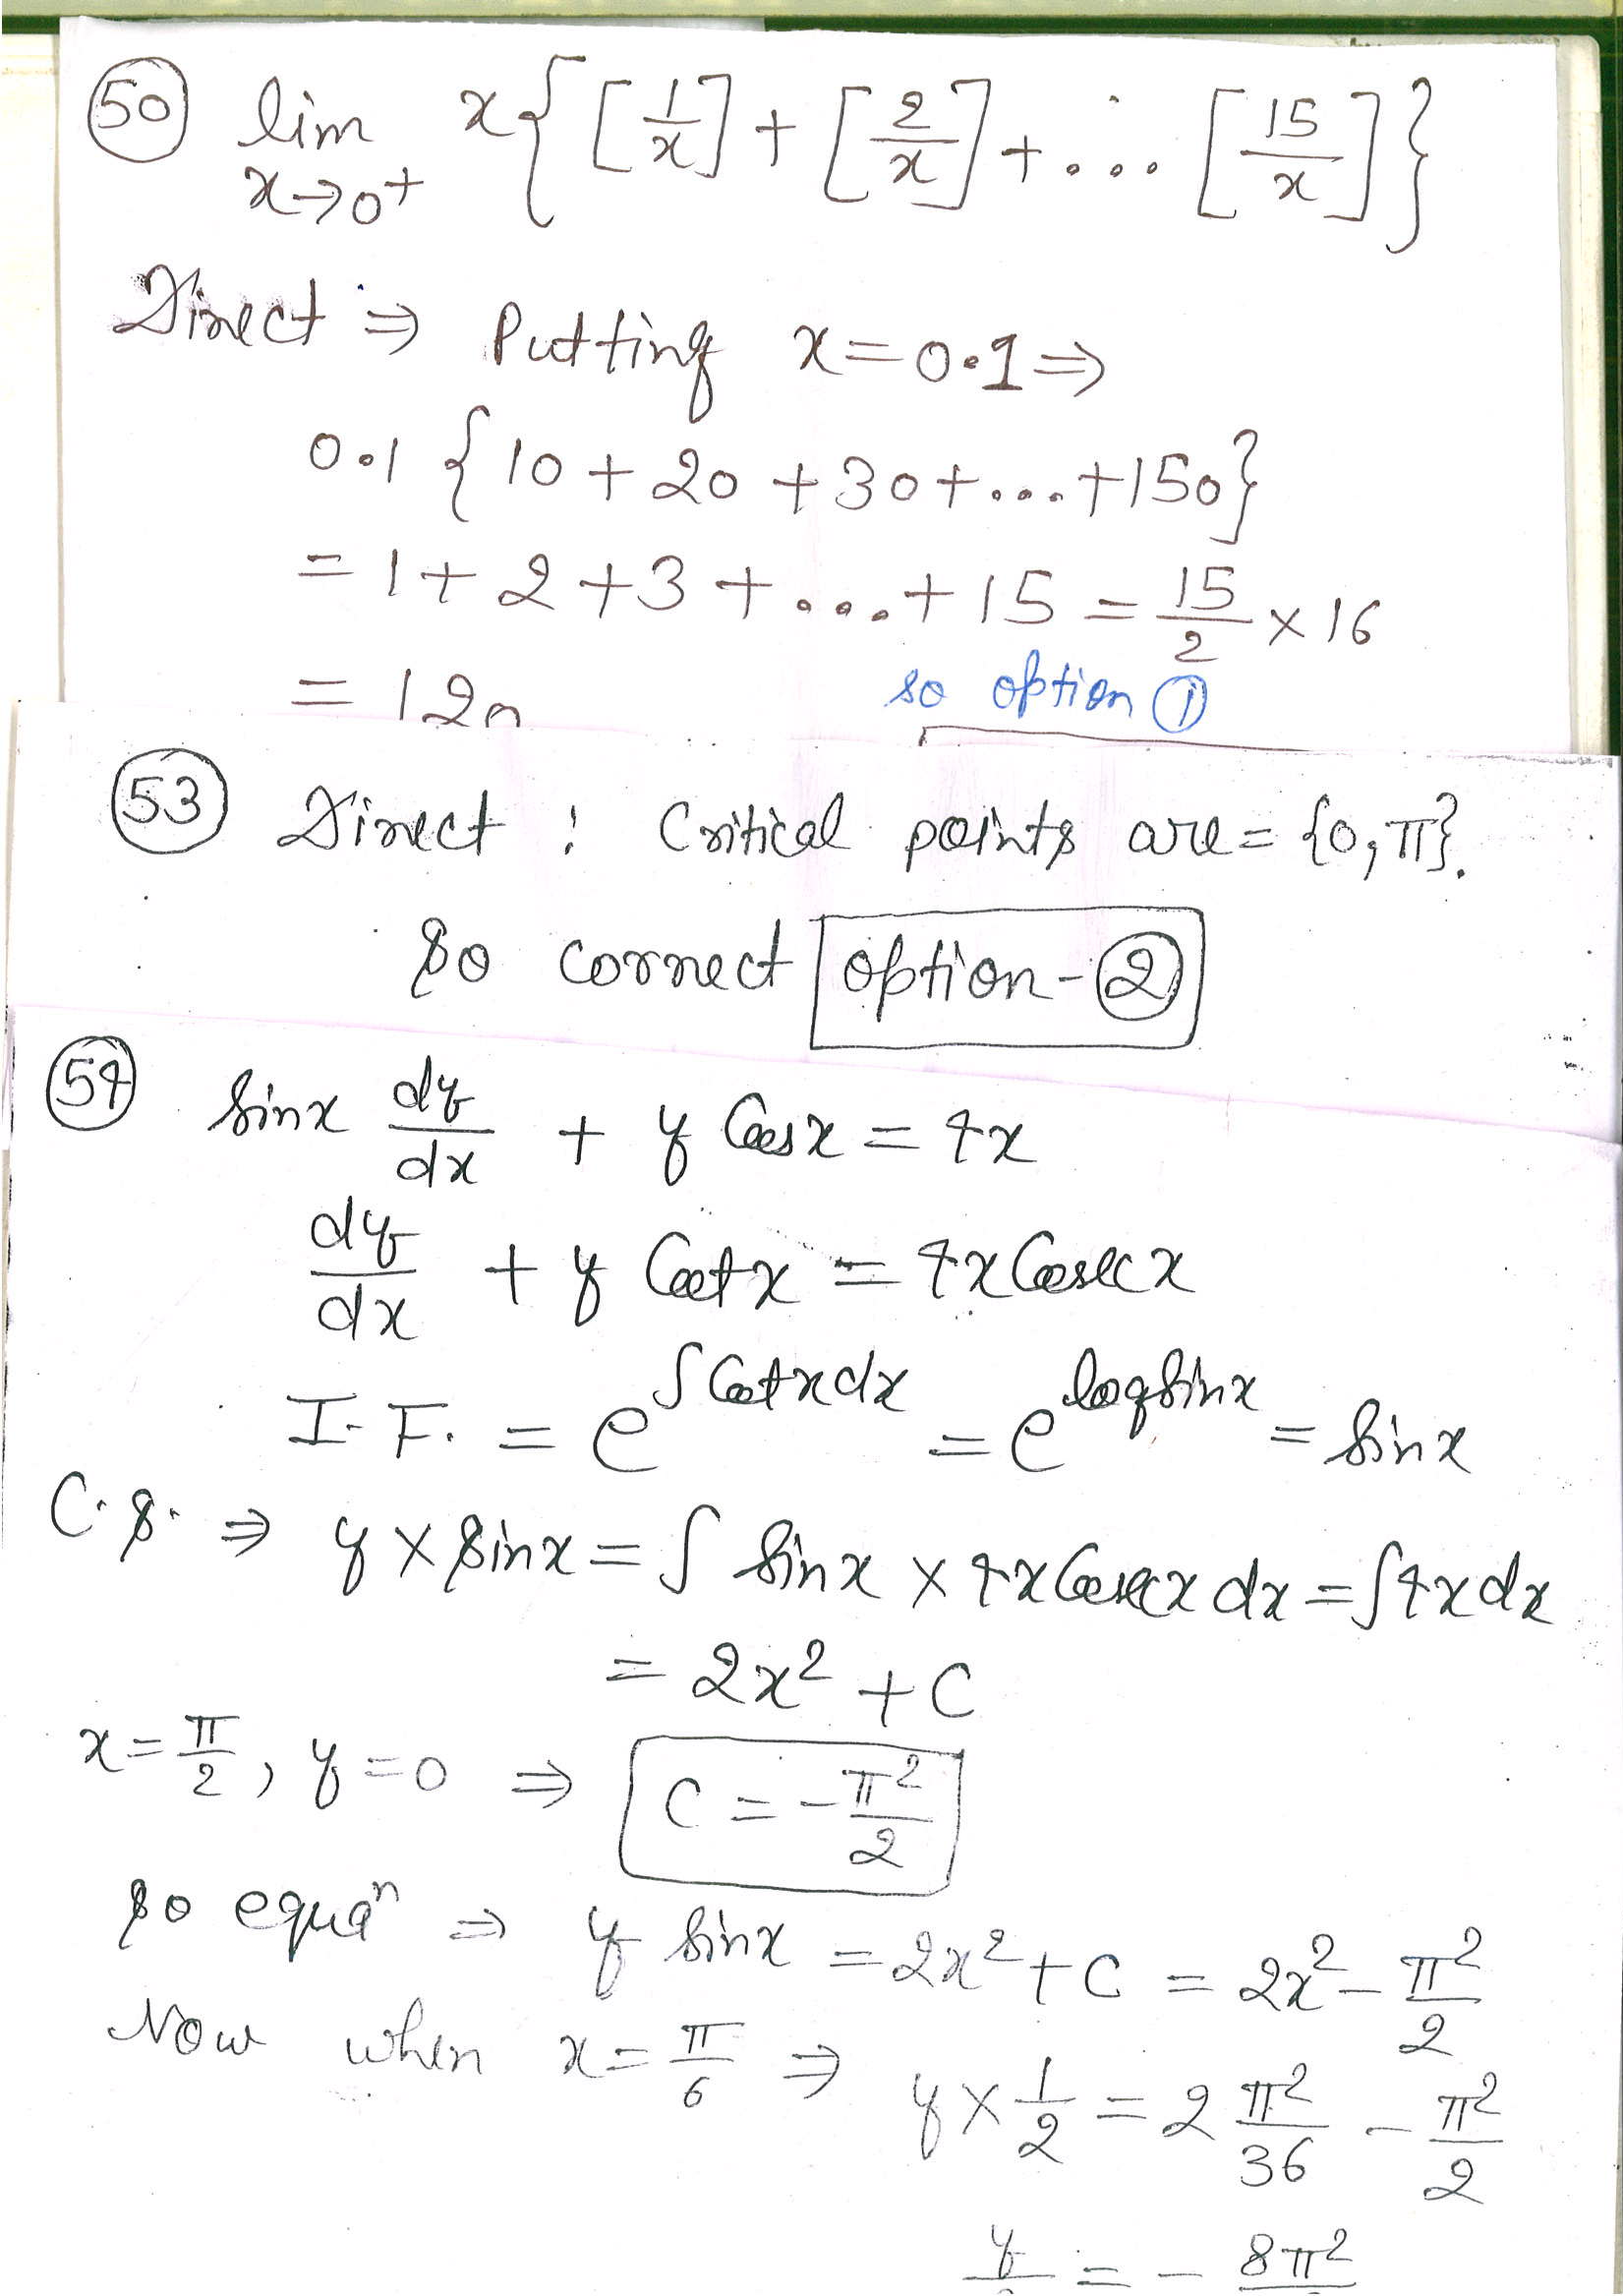 50 lim x→0+ x{[1/x]+[2/x]+... [15/x]}
Direct ⇒ Putting x=0.1⇒
0.1 {10+20+30+...+150}
=1+2+3+...+15=15/2×16
=120
so option 1
53 Direct : Critical points are={0,π}.
So correct option-2
54 sinx dy/dx + y Cosx=4x
dy/dx + y Cotx=4x Cosecx
I.F. = e^∫Cotxdx = e^logsinx = sinx
C.S. ⇒ y×sinx=∫ sinx×4xCosecx dx=∫4xdx
= 2x²+C
x=π/2, y=0 ⇒ C=-π²/2
So equaⁿ ⇒ y sinx =2x²+C = 2x²-π²/2
Now when x=π/6 ⇒ y×1/2=2 π²/36 - π²/2
y = - 8π²